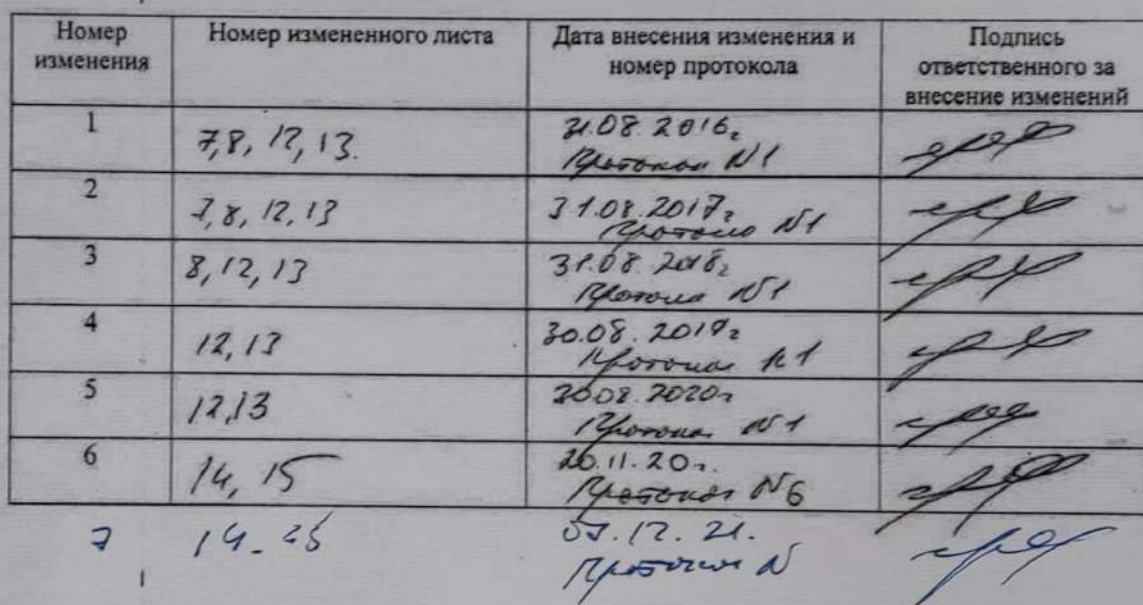 Номер изменения
Номер измененного листа
Дата внесения изменения и номер протокола
Подпись ответственного за внесение изменений
1
7,8, 12, 13.
31.08.2016г
Протокол N1
2
7,8, 12, 13
31.08.2017г
Протокол N1
3
8, 12, 13
31.08.2018г
Протокол N1
4
12, 13
30.08.2019г
Протокол N1
5
12,13
2020г
Протокол N1
6
14, 15
20.11.20г.
Протокол N6
7
14-
12.21.
Протокол N